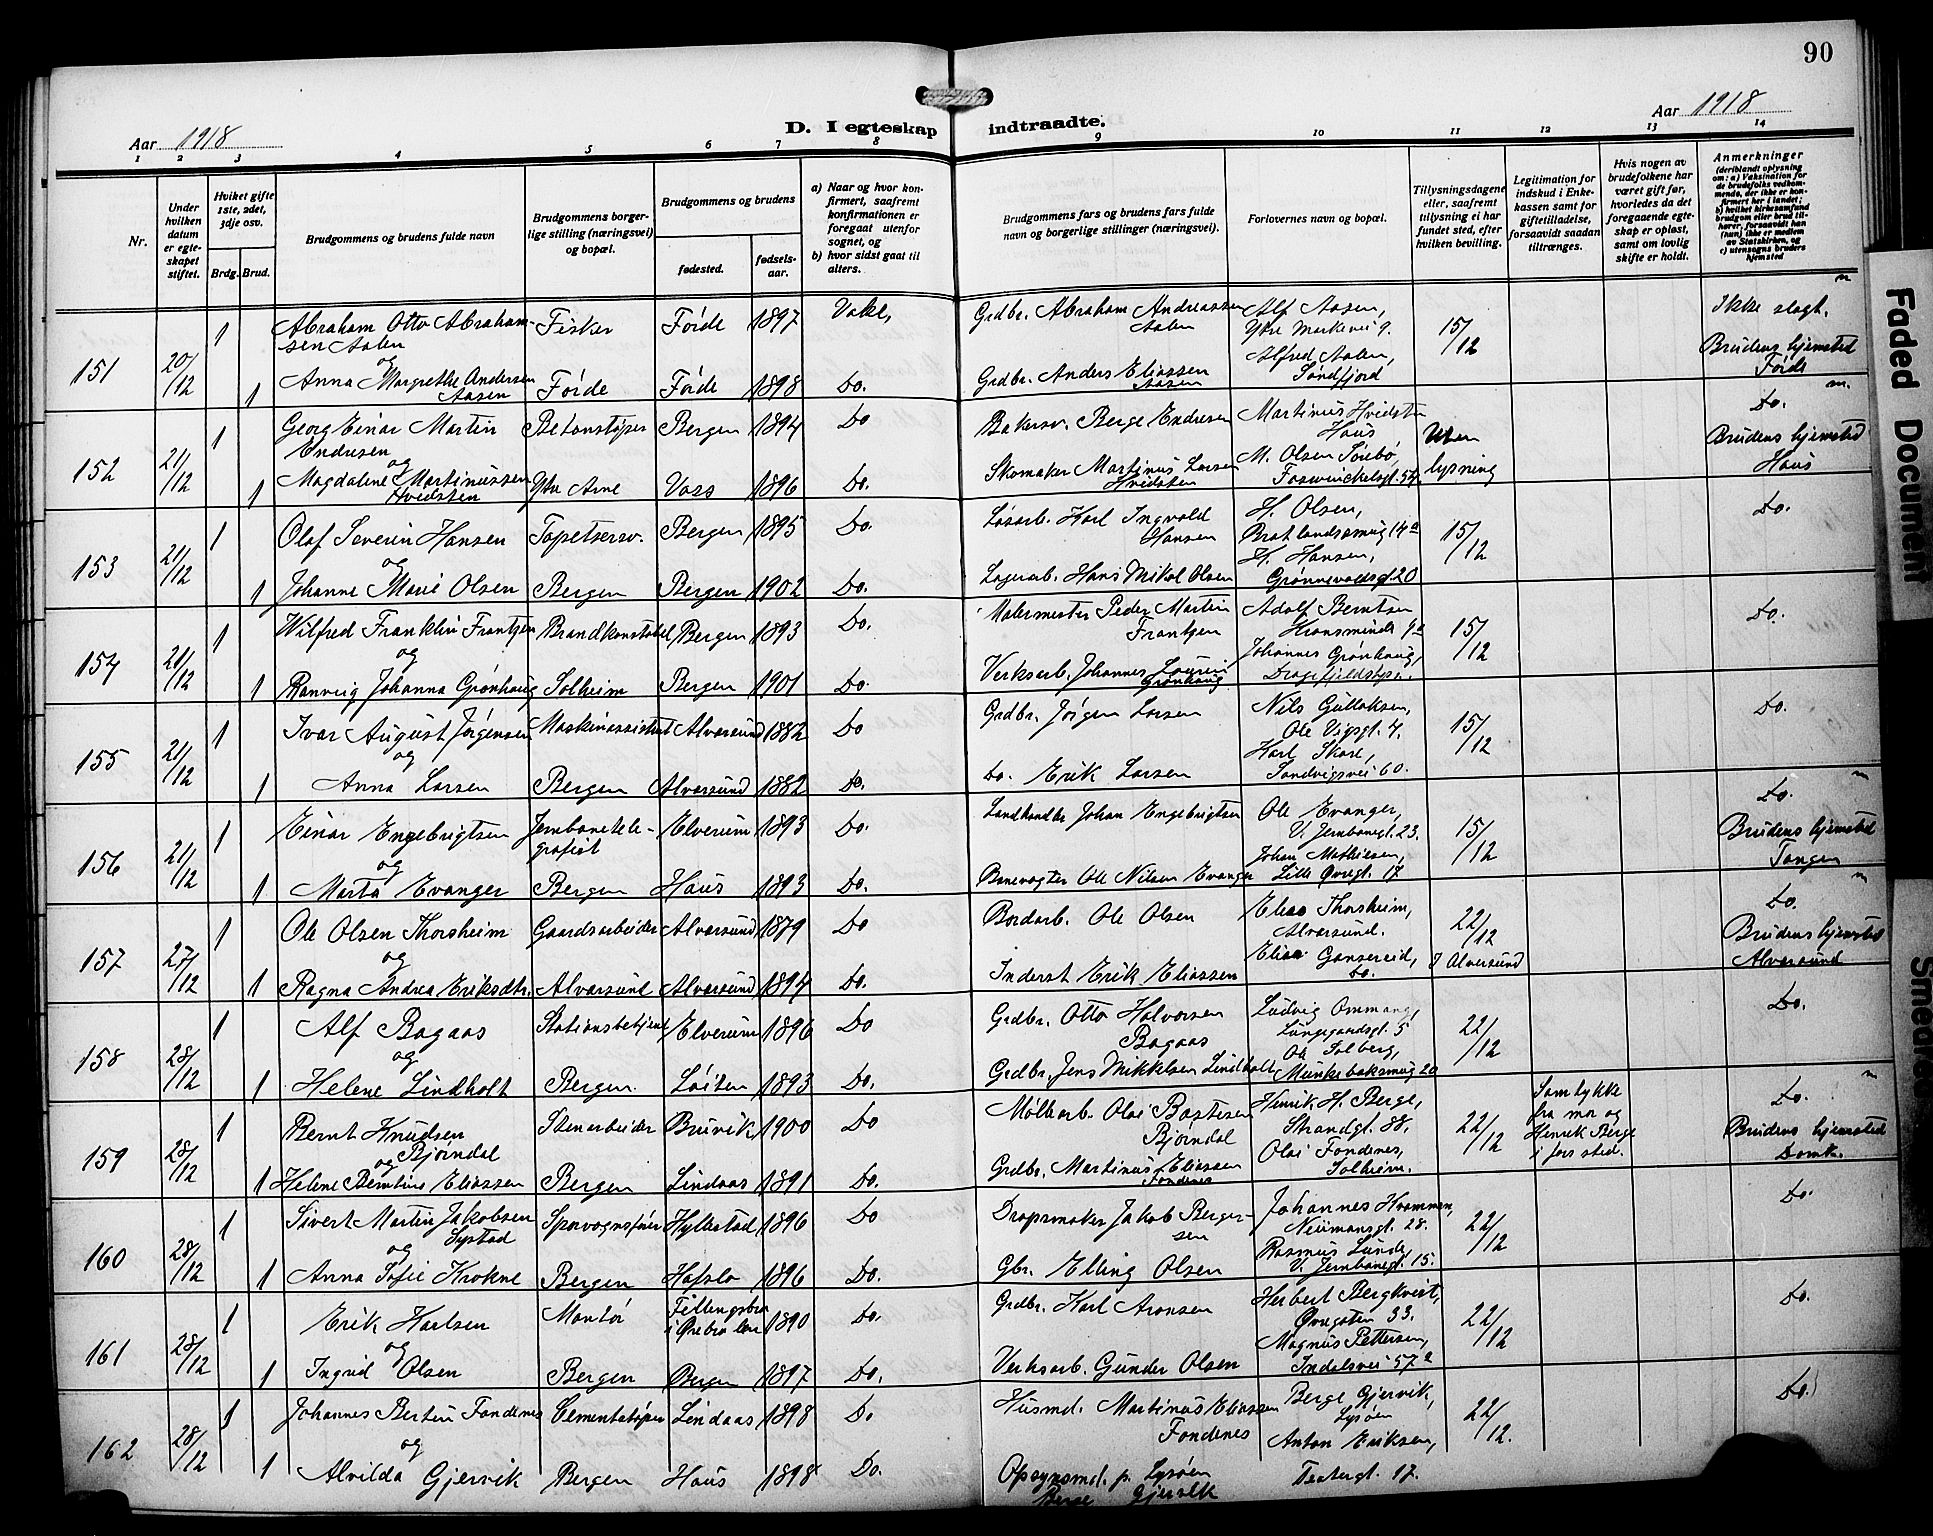 90
Aar 1918
D. I egteskap indtraadte.
Aar 1918
1 2 3 4 5 6 7 8 9 10 11 12 13 14
Nr.
Under hvilken datum er egte-skapet stiftet.
Hviket gifte 1ste, 2det, 3dje osv.
Brdg. Brud.
Brudgommens og brudens fulde navn
Brudgommens borger-lige stilling (næringsvei) og bopæl.
Brudgommens og brudens
fødested.
fødsels-aar.
a) Naar og hvor kon-firmert, saafremt konfirmationen er foregaat utenfor sognet, og
b) hvor sidst gaat til alters.
Brudgommens fars og brudens fars fulde navn og borgerlige stillinger (næringsvei).
Forlovernes navn og bopæl.
Tillysningsdagene eller, saafremt tillysning ei har fundet sted, efter hvilken bevilling.
Legitimation for indskud i Enke-kassen samt for giftetilladelse, forsaavidt saadan tiltrænges.
Hvis nogen av brudefolkene har været gift før, hvorledes da det foregaaende egte-skap er opløst, samt om lovlig skifte er holdt.
Anmerkninger (deriblandt oplysning om: a) Vaksination for de brudefolks vedkom-mende, der ikke er kon-firmert her i landet; b) hvilket kirkesamfund brudgom eller brud til-hører, forsaavidt han (hun) ikke er medlem av Statskirken, og c) utensogns bruders hjemsted
151 20/12 1 Abraham Otto Abraham-sen Aalen Fisker Førde 1897 Grdbr. Abraham Andreassen Aalen Alf Aasen, Ytre Markevei 9. 15/12 Ikke slegt.
og
1 Anna Margrethe Andersen Aasen Førde Førde 1898 Do. Grdbr. Anders Eliassen Aasen Alfred Aalen, Søndfjord Brudens hjemsted Førde
152 21/12 1 Georg Einar Martin Endresen Betonstøper Bergen 1894 Do Bakersv. Berge Endresen Martinus Hvidsten Haus Uten lysning Do.
og
1 Magdalene Martinussen Hvidsten Ytre Arne Voss 1896 Do. Skomaker Martinus Larsen Hvidsten M. Olsen Sørbø, Foswinckelsgt. 54 Brudens hjemsted Haus
153 21/12 1 Olaf Severin Hansen Tapetserersv. Bergen 1895 Do. Løsarb. Karl Ingvald Hansen H. Olsen, Bratlandssmug 14a 15/12 Do.
og
1 Johanne Marie Olsen Bergen Bergen 1902 Do. Lagerarb. Hans Mikal Olsen H. Hansen, Grønnevoldsgt. 20
154 21/12 1 Wilfred Franklin Frantzen Brandkonstabel Bergen 1893 Do. Malermester Peder Martin Frantzen Adolf Berntsen Kronsminde 9a 15/12 Do.
og
1 Ranveig Johanna Grønhaug Solheim Bergen 1901 Do. Verksarb. Johannes Laurin Grønhaug Johannes Grønhaug,
155 21/12 1 Ivar August Jørgensen Maskinassistent Alversund 1882 Do Grdbr. Jørgen Larsen Nils Gullaksen, Ole Vigsgt. 4. 15/12 Do.
og
1 Anna Larsen Bergen Alversund 1882 Do. Do. Erik Larsen Karl Skare, Sandvigsvei 60.
156 21/12 1 Einar Engebrigtsen Jernbanetele-grafist Elverum 1893 Do. Landhandler Johan Engebrigtsen Ole Evanger, V. Jernbanegt. 23. 15/12 Do.
og
1 Marta Evanger Bergen Haus 1893 Do. Banevogter Ole Nilsen Evanger Johan Mathiesen, Lille Øvregt. 17 Brudens hjemsted Tangen
157 27/12 1 Ole Olsen Thorsheim Gaardsarbeider Alversund 1879 Do Bordarb. Ole Olsen Elias Thorsheim, Alversund. 22/12 Do.
og
1 Ragna Andrea Eriksdtr. Alversund Alversund 1894 Do. Inderst Erik Eliassen Elias Gansereid, Do. I Alversund Brudens hjemsted Alversund
158 28/12 1 Alf Bagaas Stationsbetjent Elverum 1896 Do Grdbr. Otto Halvorsen Bagaas Ludvig Ommang, Lungegaardsgt. 5 22/12 Do.
og
1 Helene Lindholt Bergen. Løiten 1893 Do. Grdbr. Jens Mikkelsen Lindholt Ole Solberg, Munkebæksmug 20
159 28/12 1 Bernt Knudsen Bjørndal Stenarbeider Bruvik 1900 Do Møllearb. Olai Bastesen Bjørndal Henrik H. Berge, Strandgt. 88. 22/12 Samtykke fra mor og Henrik Berge i fars sted. Do.
og
1 Helene Berntine Eliassen Bergen Lindaas 1891 Do. Grdbr. Martinus Eliassen Fondenes Olai Fondenes, Solheim. Brudens hjemsted Domk.
160 28/12 1 Sivert Martin Jakobsen Systad Sporvognsfører Hyllestad 1896 Do Dropsmaker Jakob Berger-sen Johannes Krammen, Neumansgt. 28. 22/12 Do.
og
1 Anna Sofie Krokne Bergen Hafslo 1896 Do. Gbr. Elling Olsen Rasmus Lunde, V. Jernbanegt. 15.
161 28/12 1 Erik Karlsen Montør Fellingsbro i Ørebro len 1890 Do. Grdbr. Karl Aronsen Herbert Bergkvist, Øvregaten 33. 22/12 Do.
og
1 Ingrid Olsen Bergen Bergen 1897 Do. Verksarb. Gunder Olsen Magnus Pettersen, Indalsvei 57a
162 28/12 1 Johannes Bertin Fondenes Cementstøper Lindaas 1898 Do Husmd. Martinus Eliassen Fondenes Berge Gjervik, Lysøen 22/12. Do.
og
1 Alvilda Gjervik Bergen Haus 1898 Do. Opsynsmd. p. Lysøen Berge Gjervik Anton Eriksen, Teatergt. 17.
Faded Document
Smedret